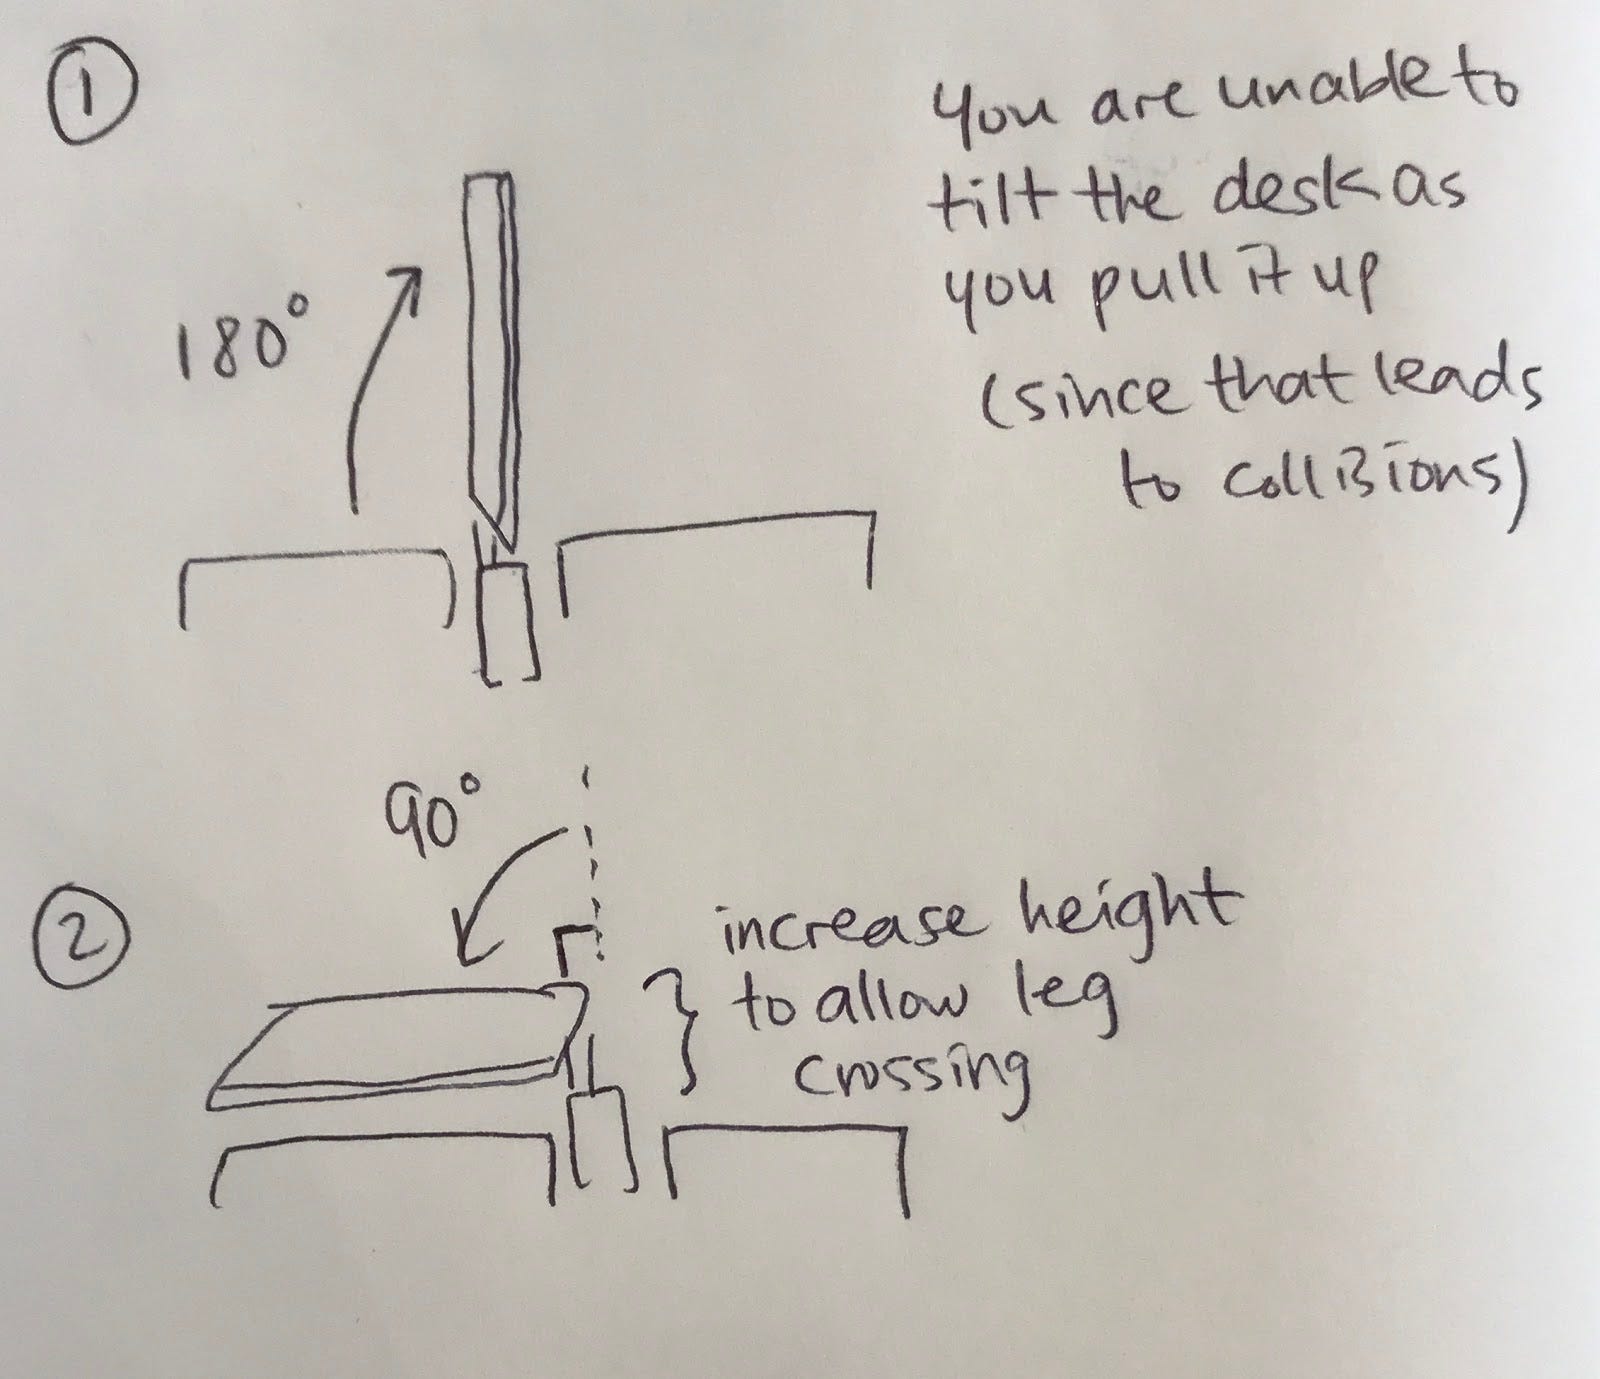 1
you are unable to
tilt the desk as
you pull it up
(since that leads
to collisions)
180°
90°
2
increase height
to allow leg
crossing